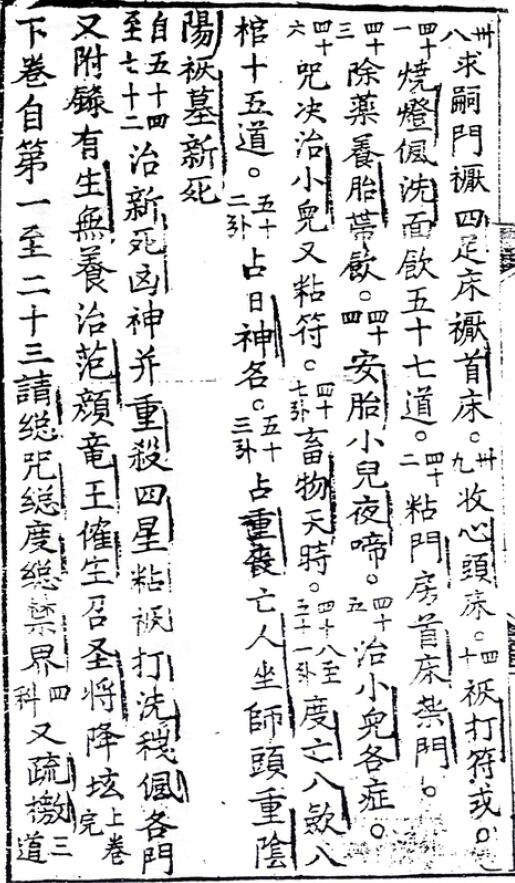 卅八求嗣門禳四足床禳首床。卅九收心頭床。四十祓打符或。
四十一燒燈偑洗面飲五十七道。四十二粘門房首床禁門。
四十三除藥養胎蒂飲。四十四安胎小兒夜啼。四十五治小兒各症。
四十六咒决治小兒又粘符。四十七卦畜物天時。四十八至五十一卦度亡八歛八
棺十五道。五十二卦占日神名。五十三卦占重丧亡人坐師頭重陰
陽祓墓新死
自五十四至七十二治新死凶神并重殺四星粘祓打洗穢偑各門
又附錄有生無養治范顔竜王傕生召圣将降坛上卷完
下卷自第一至二十三請緫咒緫度緫禁界四科又疏檄三道